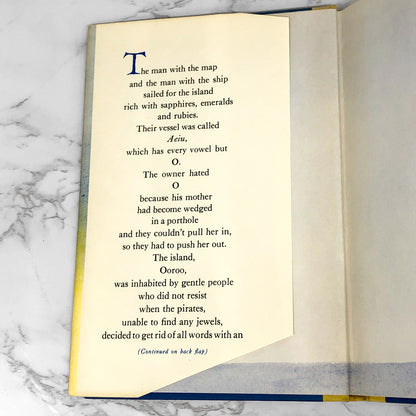 The man with the map
and the man with the ship
sailed for the island
rich with sapphires, emeralds
and rubies.
Their vessel was called
Aeiu,
which has every vowel but
O.
The owner hated
O
because his mother
had become wedged
in a porthole
and they couldn't pull her in,
so they had to push her out.
The island,
Ooroo,
was inhabited by gentle people
who did not resist
when the pirates,
unable to find any jewels,
decided to get rid of all words with an
(Continued on back flap)